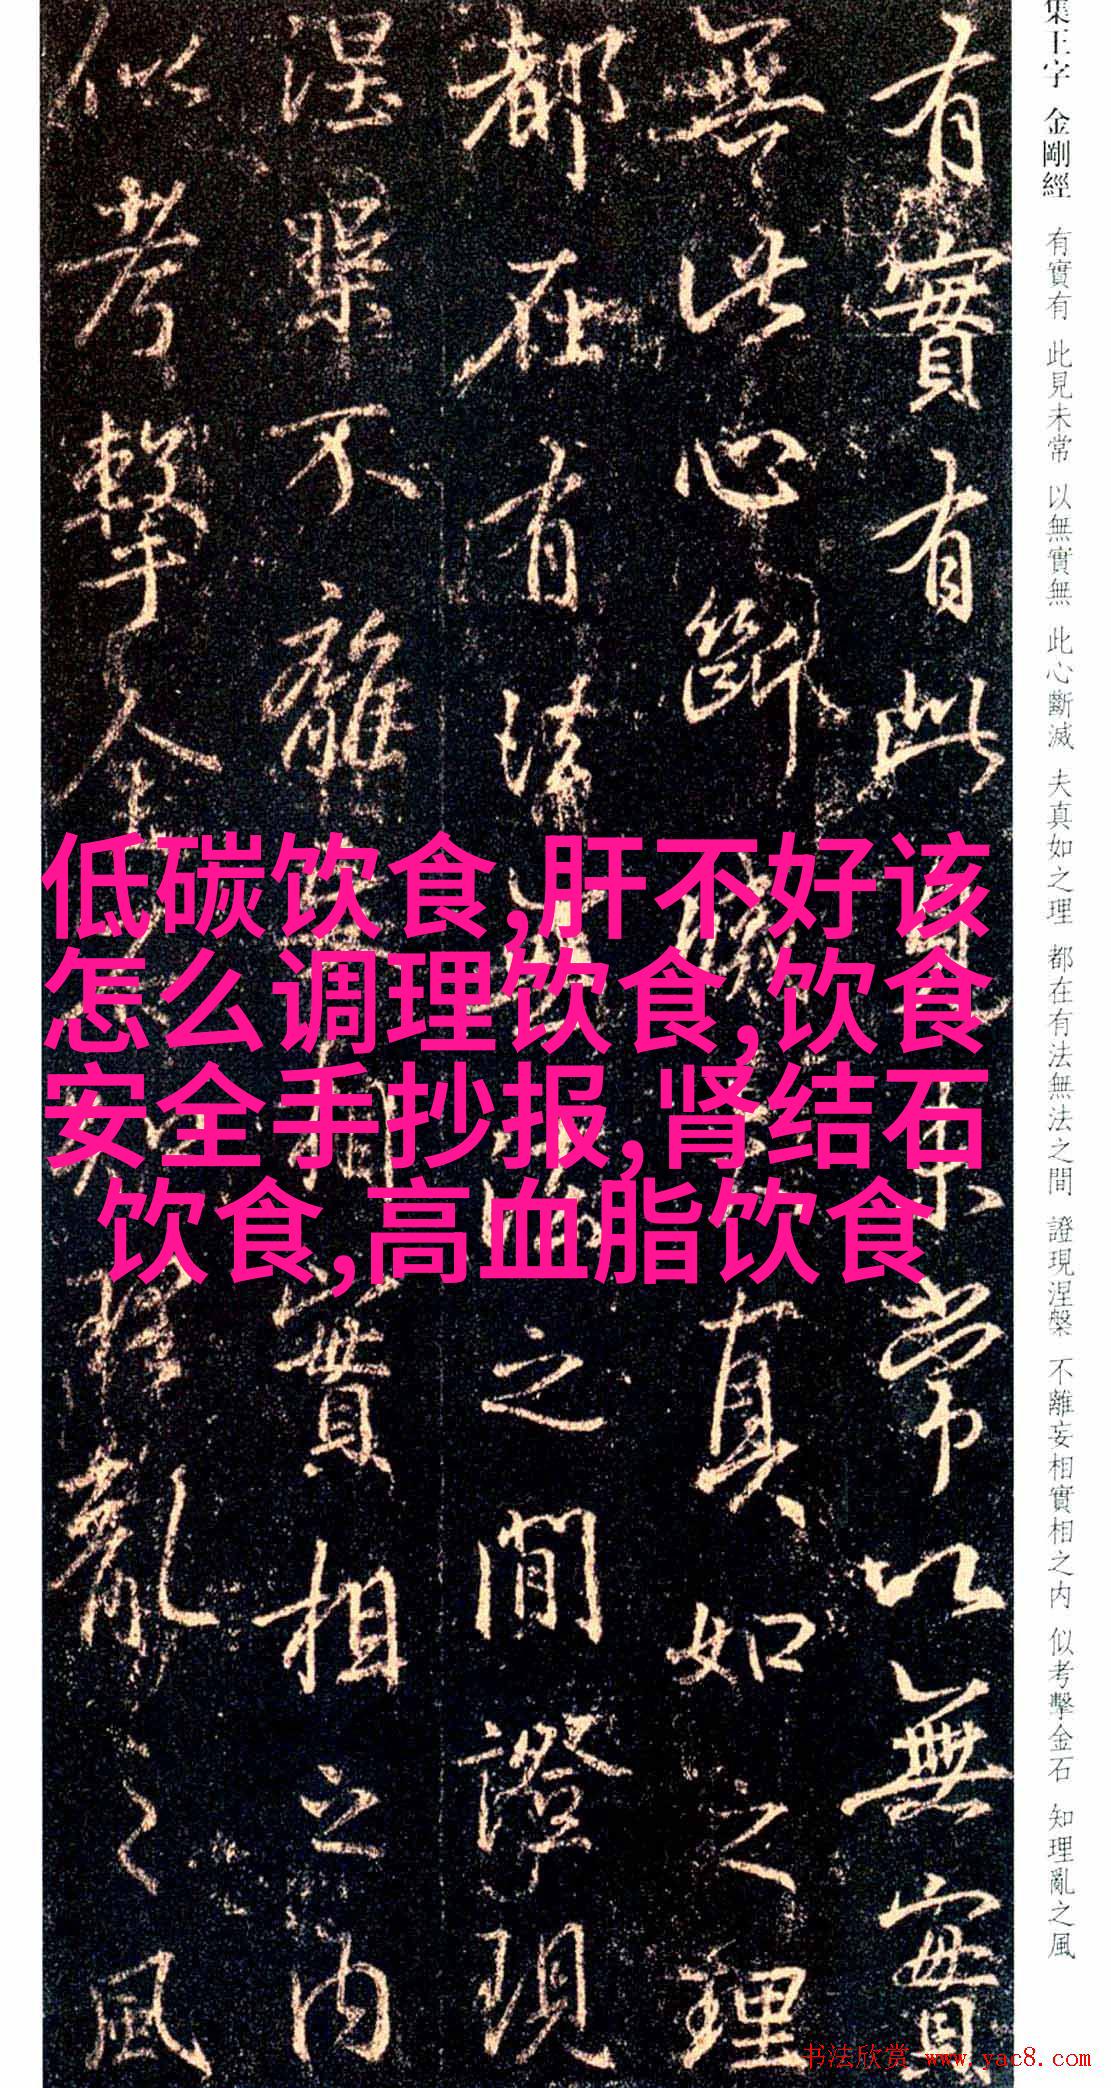 集王字 金剛經 有實有 此見未常 以無實無 此心斷滅 夫真如之理 都在有法無法之間 證現涅槃 不離妄相實相之内 似考擊金石 知理亂之風
有實有此見未常以無實
無此心斷滅夫真如之理
都在有法無法之間證現
涅槃不離妄相實相之内
似考擊金石知理亂之風
低碳饮食,肝不好该
怎么调理饮食,饮食
安全手抄报,肾结石
饮食,高血脂饮食
书法欣赏 www.yac8.com